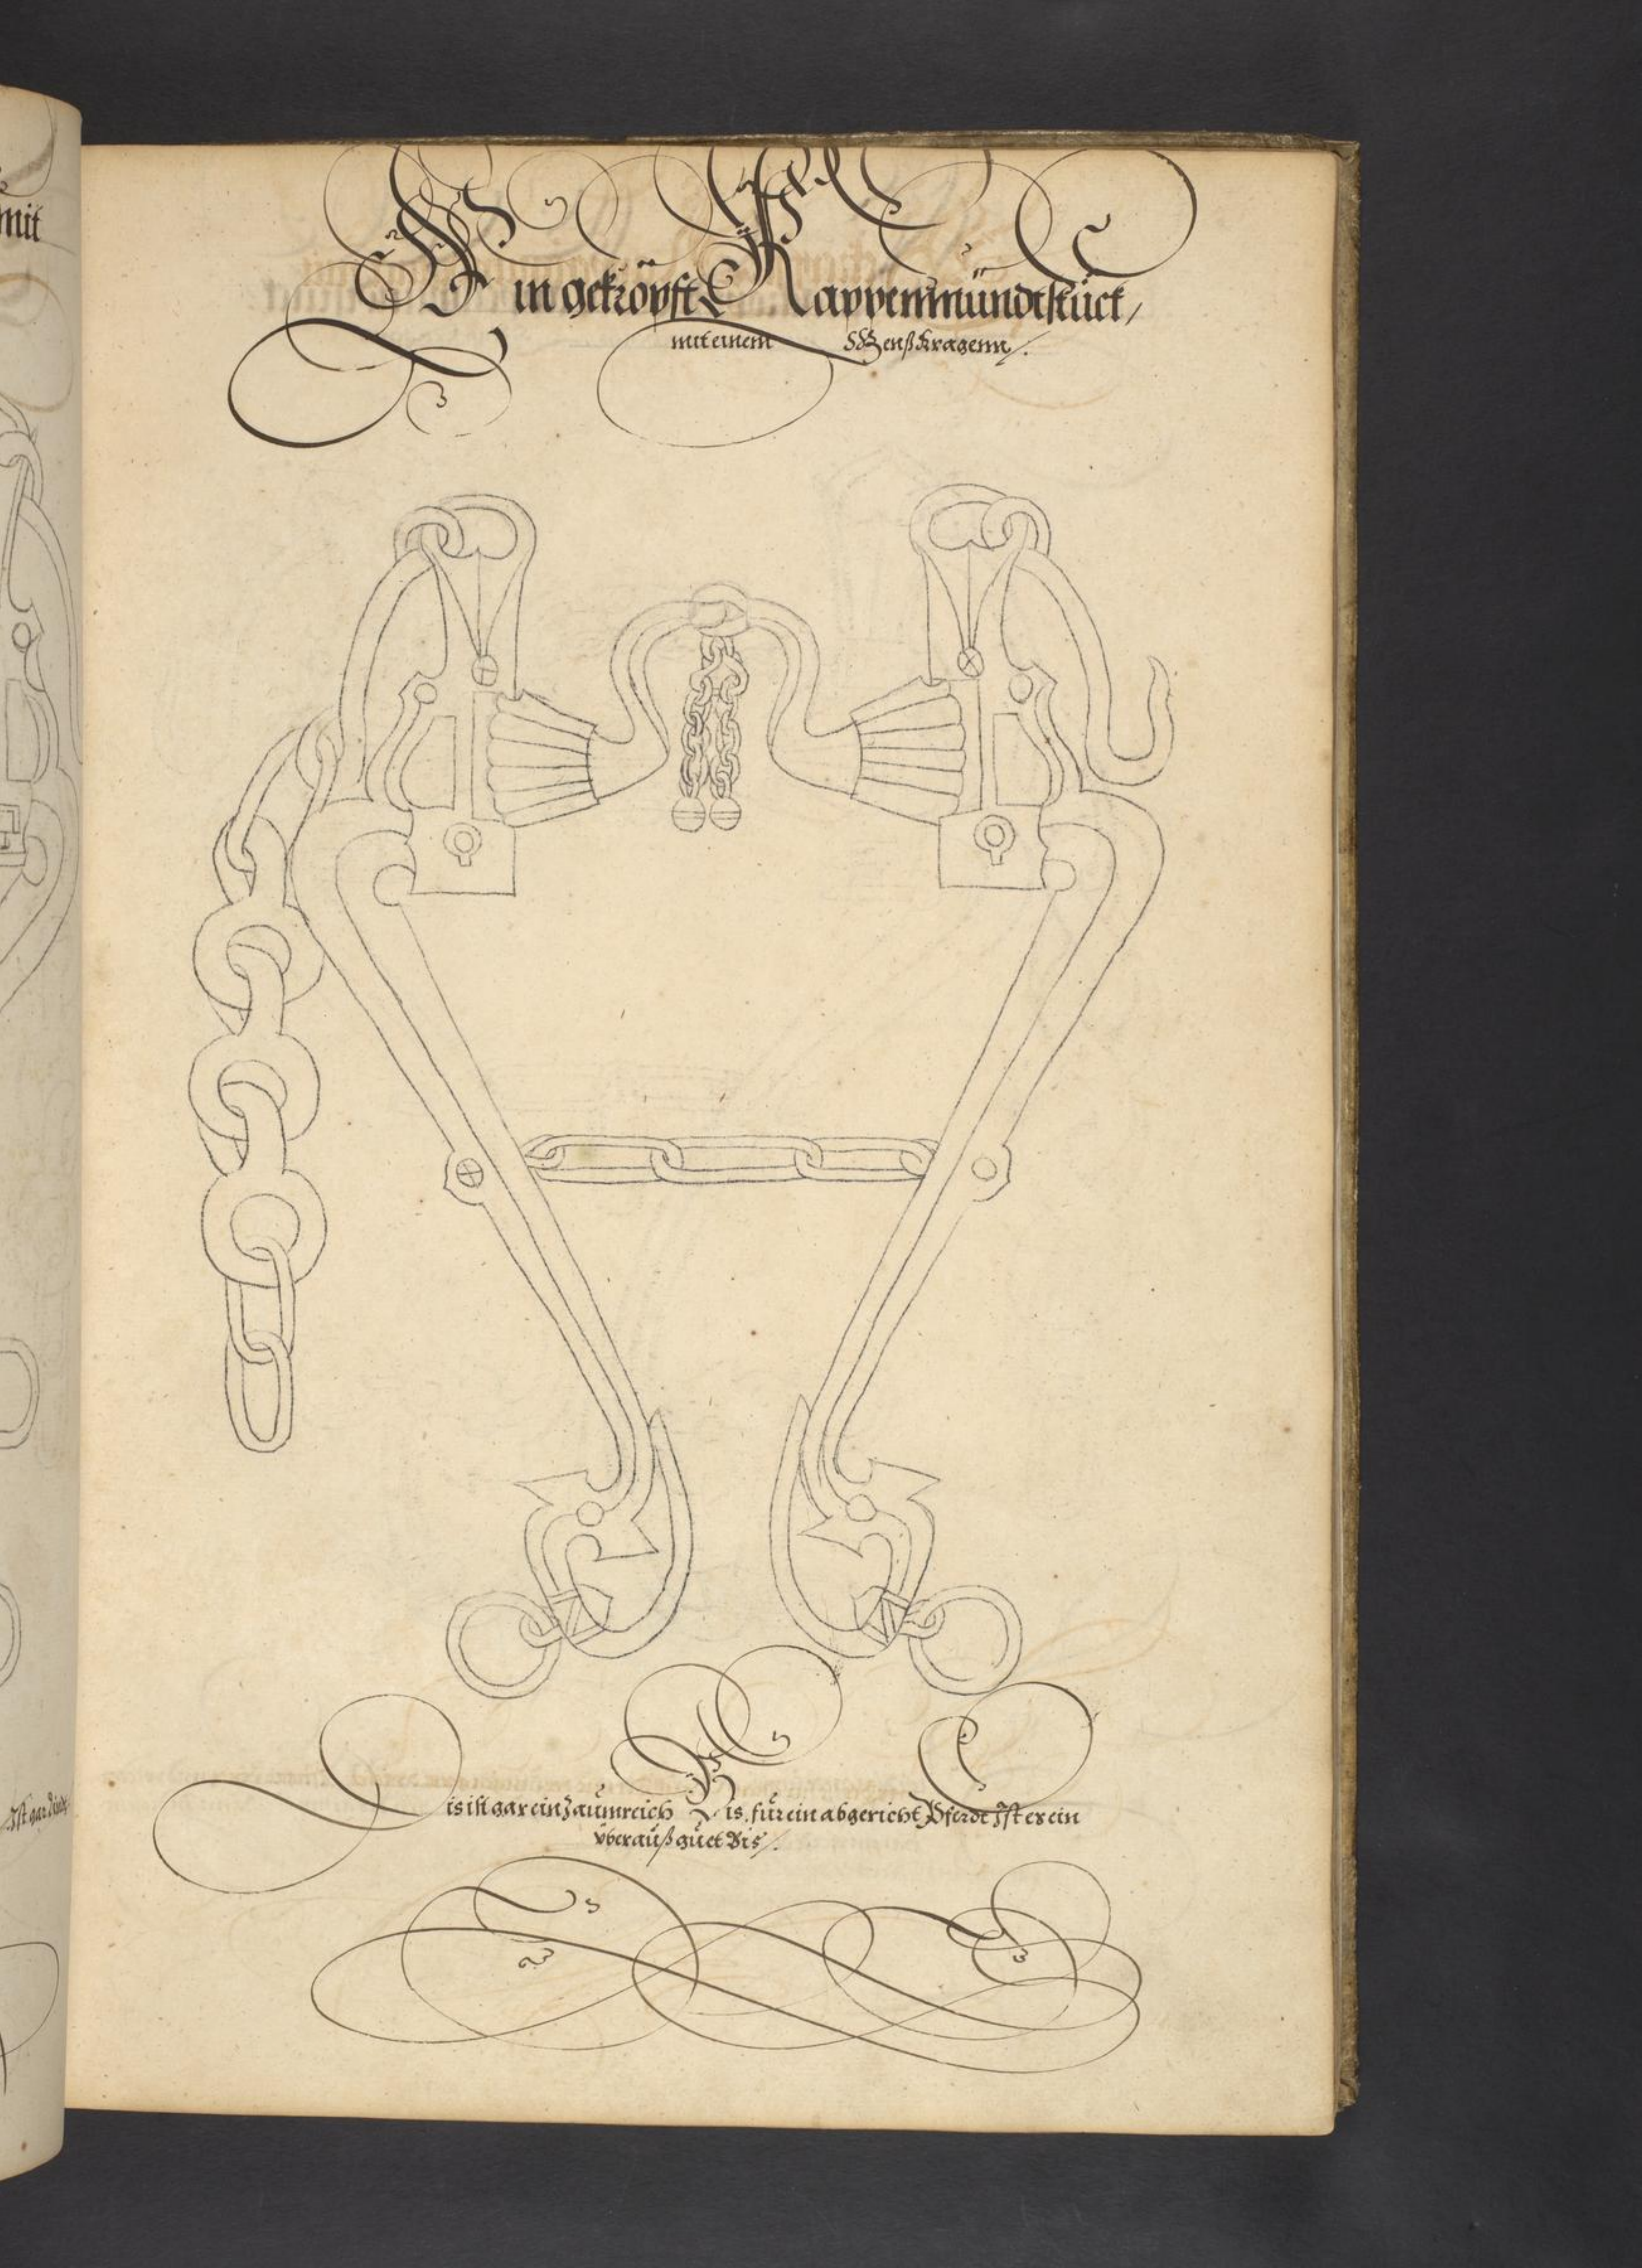 mit
Ein gekröpft Kappenmündtstück /
mit einem Genßkragenn /.
Ist gar
Dis ist gar ein Zaümreich Bis, für ein abgericht Pferdt Ist er ein
vberaüß güet Bis /.